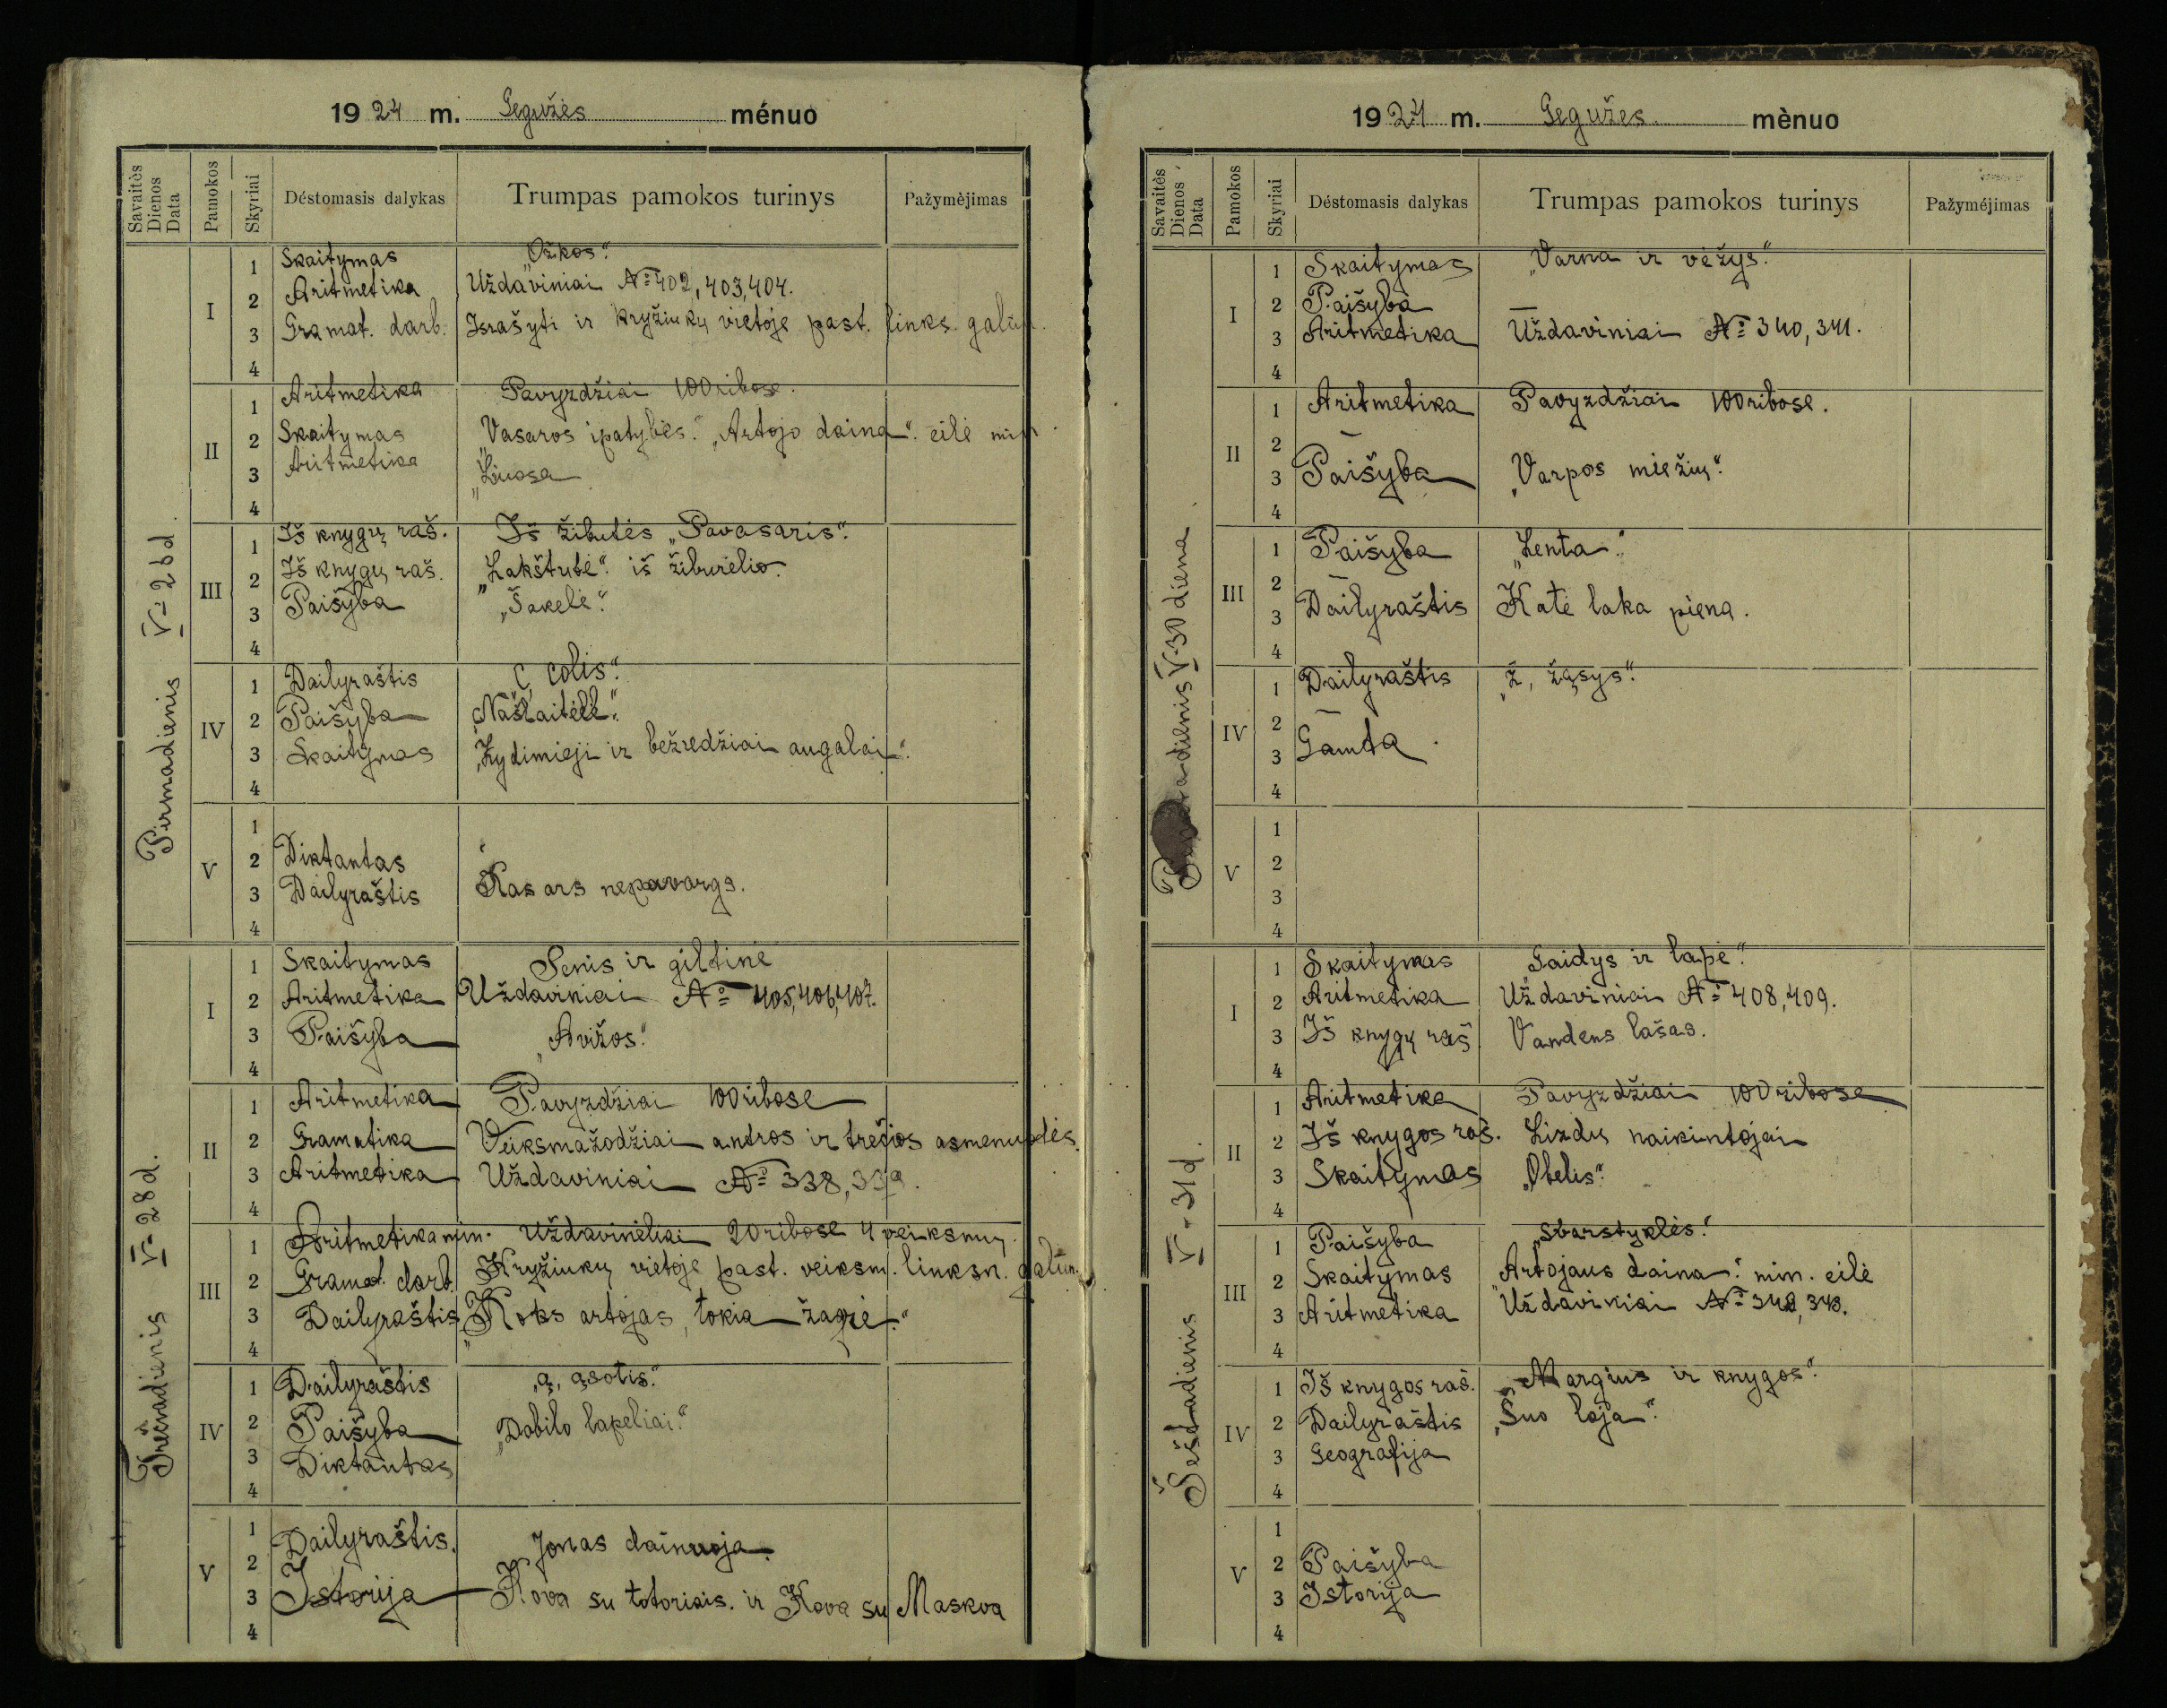 1924 m. Gegužės ménuo
Savaitės Dienos Data
Pamokos
Skyriai
Déstomasis dalykas
Trumpas pamokos turinys
Pažymėjimas
Pirmadienis V-26 d.
I
1 Skaitymas „Ožkos“.
2 Aritmetika Uždaviniai № 402, 403, 404.
3 Gramat. darb. Israšyti ir kryžiukų vietoje past. links. galūn.
4
II
1 Aritmetika Pavyzdžiai 100 ribose.
2 Skaitymas „Vasaros ipatybės.“ „Artojo daina“. eilė min.
3 Aritmetika „Liuosa
4
III
1 Iš knygų raš. Iš žibutės „Pavasaris“.
2 Iš knygų raš. „Lakštutė“. iš žiburėlio.
3 Paišyba „Šakelė“.
4
IV
1 Dailyraštis C, colis“.
2 Paišyba „Našlaitėlė“.
3 Skaitymas „Žydimieji ir bežiedžiai augalai“.
4
V
1
2 Diktantas
3 Dailyraštis Kas ars nepavargs.
4
Trečiadienis V-28 d.
I
1 Skaitymas Senis ir giltinė
2 Aritmetika Uždaviniai № 405, 406, 407.
3 Paišyba „Avižos“.
4
II
1 Aritmetika Pavyzdžiai 100 ribose
2 Gramatika Veiksmažodžiai antros ir trečios asmenuotės.
3 Aritmetika Uždaviniai № 338, 339.
4
III
1 Aritmetika min. Uždavinėliai 20 ribose 4 veiksmų.
2 Gramat. darb. Kryžiukų vietoje past. veiksm. linksn. galūn.
3 Dailyraštis „Koks artojas, tokia žagrė.“
4
IV
1 Dailyraštis „ą, ąsotis“.
2 Paišyba „Dobilo lapeliai.“
3 Diktantas
4
V
1
2 Dailyraštis. Jonas dainuoja.
3 Istorija Kova su totoriais. ir Kova su Maskva
4
1924 m. Gegužes mènuo
Savaitės Dienos Data
Pamokos
Skyriai
Déstomasis dalykas
Trumpas pamokos turinys
Pažyméjimas
V-30 diena
I
1 Skaitymas „Varna ir vėžys“.
2 Paišyba —
3 Aritmetika Uždaviniai № 340, 341.
4
II
1 Aritmetika Pavyzdžiai 100 ribose.
2 —
3 Paišyba „Varpos miežių“.
4
III
1 Paišyba „Lenta“.
2 —
3 Dailyraštis Katė laka pieną.
4
IV
1 Dailyraštis „ž, žąsys“.
2 —
3 Gamta.
4
V
1
2
3
4
Šeštadienis V-31 d.
I
1 Skaitymas „Gaidys ir lapė“.
2 Aritmetika Uždaviniai № 408, 409.
3 Iš knygų raš Vandens lašas.
4
II
1 Aritmetika Pavyzdžiai 100 ribose
2 Iš knygos raš. Lizdų naikintojai
3 Skaitymas „Obelis“.
4
III
1 Paišyba „Svarstyklės.“
2 Skaitymas „Artojaus daina“. min. eilė
3 Aritmetika Uždaviniai № 342, 343.
4
IV
1 Iš knygos raš. „Margius ir knygos“.
2 Dailyraštis „Šuo loja“.
3 Geografija
4
V
1
2 Paišyba
3 Istorija
4